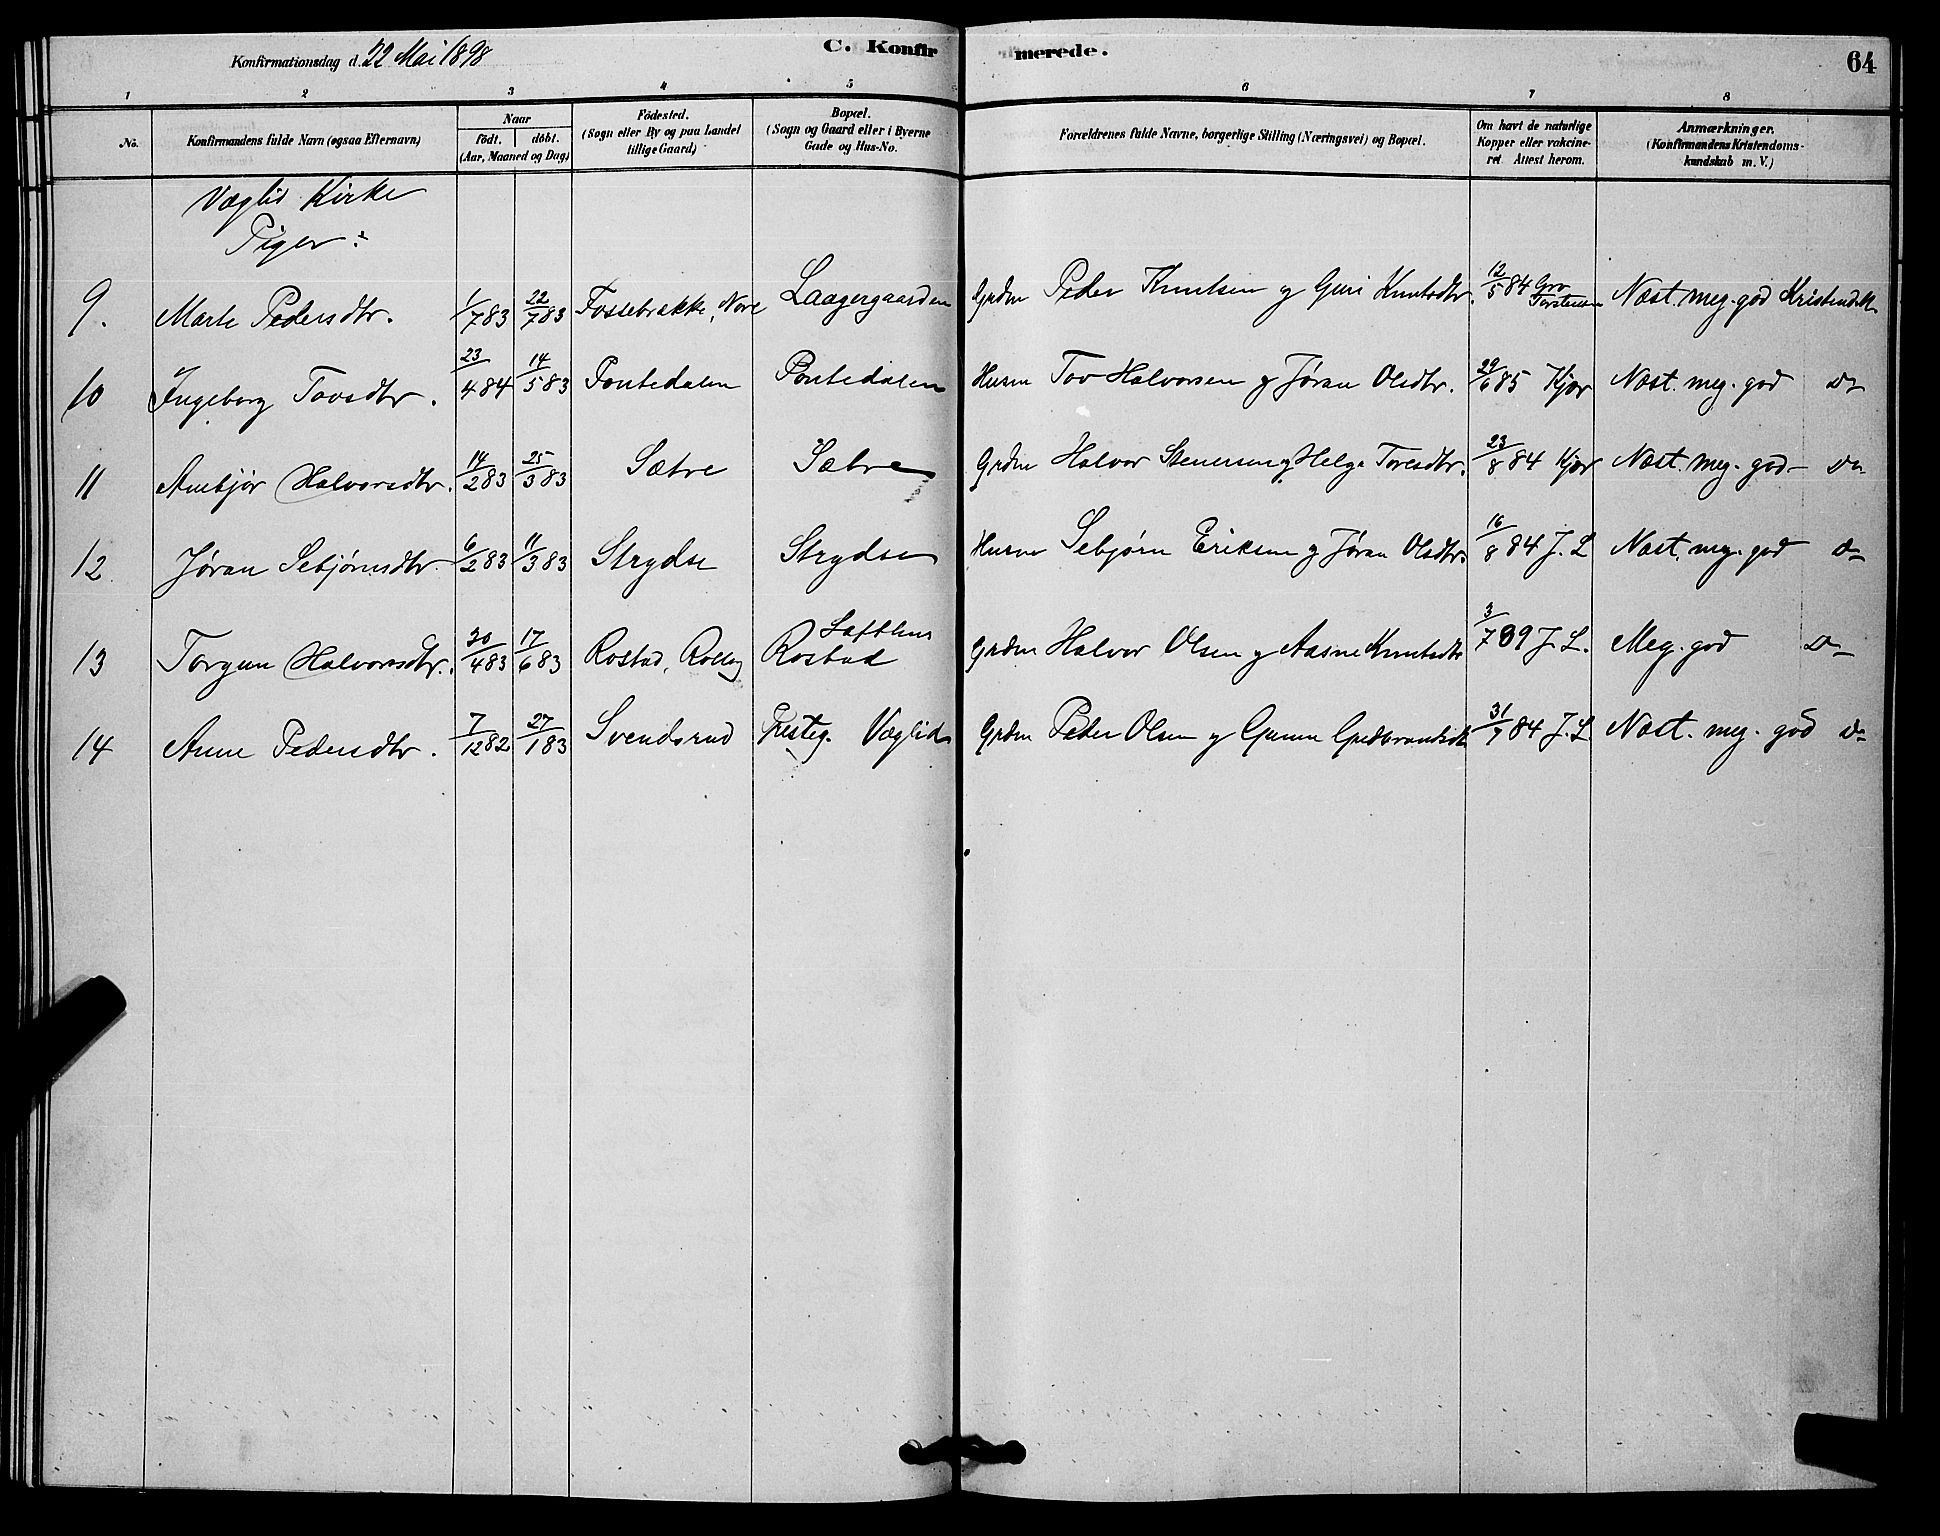 Konfirmationsdag d. 22 Mai 1898 C. Konfirmerede. 64
1 2 3 4 5 6 7 8
No.
Konfirmandens fulde Navn (ogsaa Efternavn)
Naar
födt. döbt.
(Aar, Maaned og Dag)
Födested.
(Sogn eller By og paa Landet
tillige Gaard)
Bopæl.
(Sogn og Gaard eller i Byerne
Gade og Hus-No.
Forældrenes fulde Navne, borgerlige Stilling (Næringsvei) og Bopæl.
Om havt de naturlige
Kopper eller vakcine-
ret Attest herom.
Anmærkninger.
(Konfirmandens Kristendoms-
kundskab m. V.)
Væglid Kirke
Piger:
9. Marte Pedersdtr. 1/7 83 22/7 83 Fossebrække, Nore Laagergaarden Grdm Peder Knutsen g Guri Knutsdtr. 12/5 84 Gro Torstensen Næst. meg. god Kristendk
10 Ingeborg Tovsdtr. 23/4 84 14/5 83 Pontedalen Pontedalen Husm Tov Halvorsen g Jøran Olsdtr. 29/6 85 Kjær Næst. meg. god Do
11 Anbjør Halvorsdtr. 14/2 83 25/3 83 Sætre Sætre Grdm Halvor Stenersen g Helga Toresdtr. 23/8 84 Kjær Næst. meg. god - Do
12 Jøran Sebjørnsdtr. 6/2 83 11/3 83 Strydse Strydse Husm Sebjørn Eriksen g Jøran Olsdtr. 16/8 84 J. L Næst. meg. god Do
13 Torgun Halvorsdtr. 30/4 83 17/6 83 Rostad, Rollag Lofthus Rostad Grdm Halvor Olsen g Aasne Knutsdtr 3/7 89 J. L. Meg. god Do
14 Anne Pedersdtr. 7/12 82 27/1 83 Svendsrud Presteg. Væglid Grdm Peder Olsen g Gunn Gudbrandsdtr 31/7 84 J. L Næst. meg. god Do